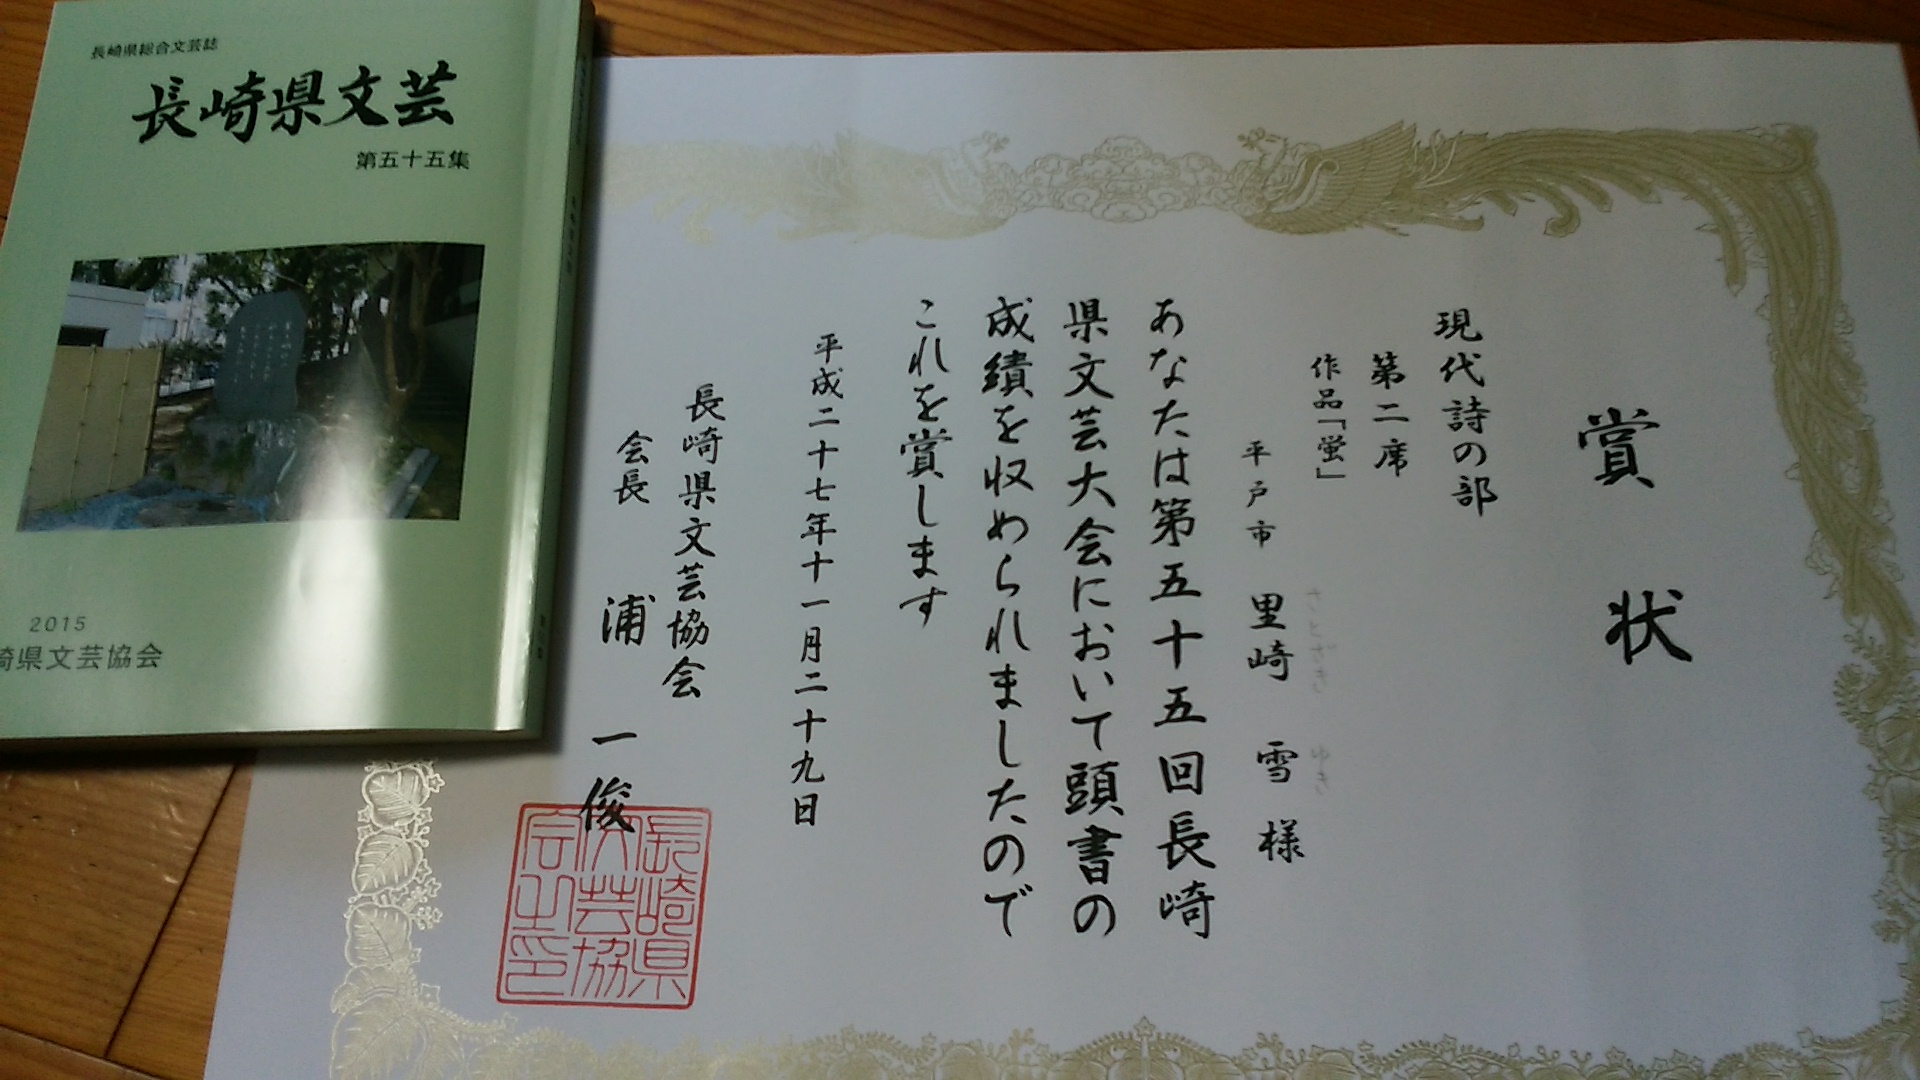 長崎県総合文芸誌
長崎県文芸
第五十五集
2015
崎県文芸協会
賞状
現代詩の部
第二席
作品「蛍」
平戸市 里崎 雪 様
さとざき ゆき
あなたは第五十五回長崎
県文芸大会において頭書の
成績を収められましたので
これを賞します
平成二十七年十一月二十九日
長崎県文芸協会
会長 浦 一俊
長崎県
文芸協
会之印